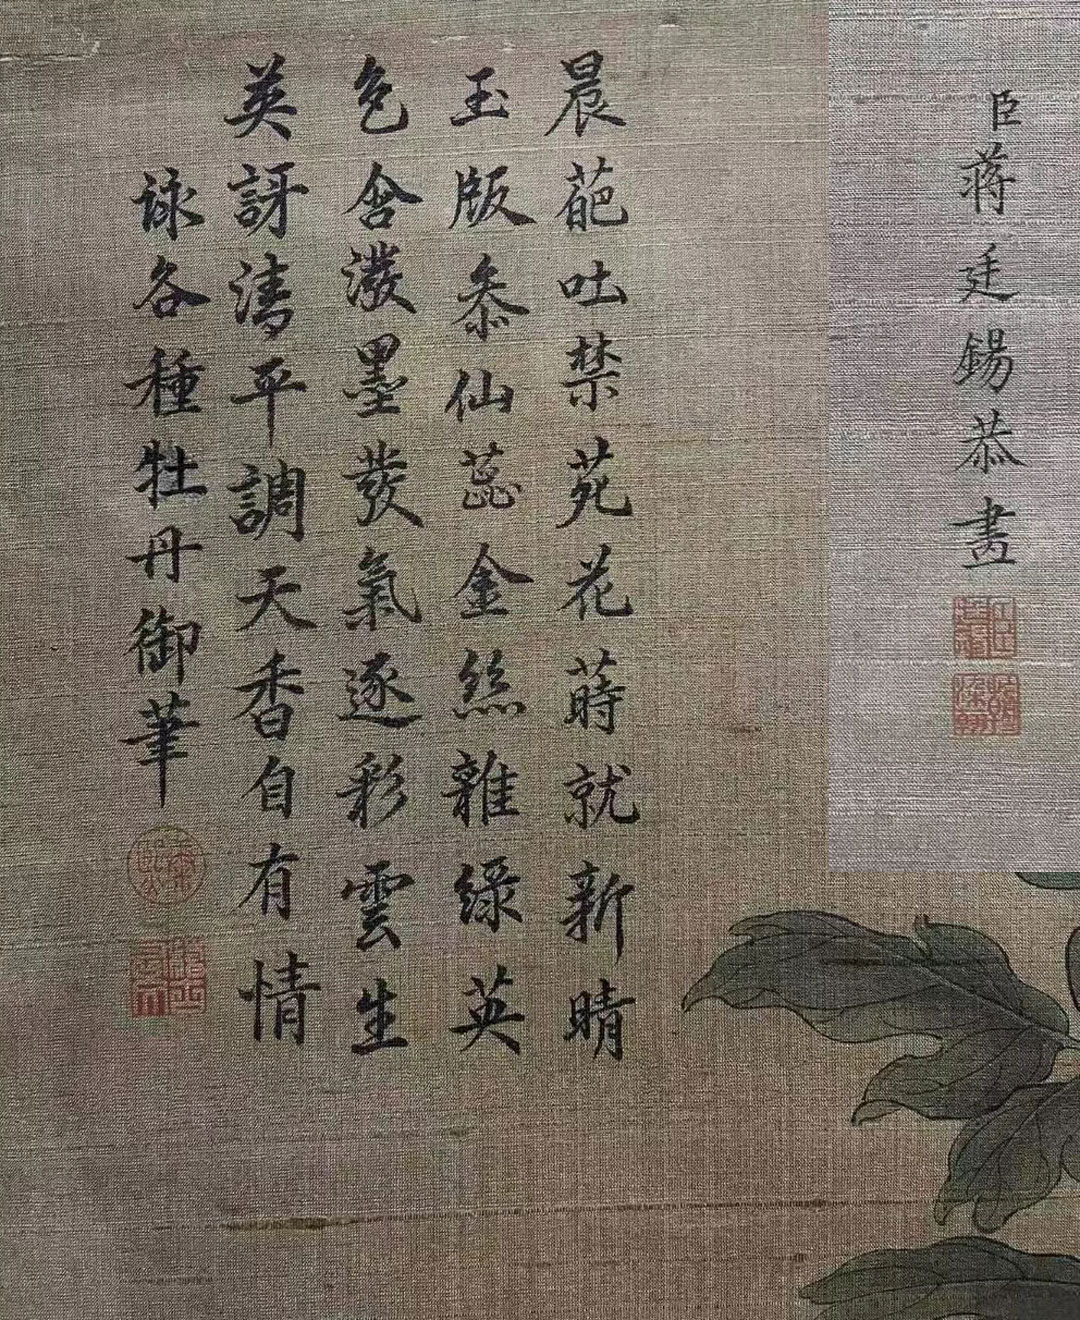 臣蔣廷錫恭畫
晨葩吐禁苑花蒔就新晴
玉版叅仙蕊金絲雜綠英
色含潑墨發氣逐彩雲生
莫訝清平調天香自有情
詠各種牡丹御筆